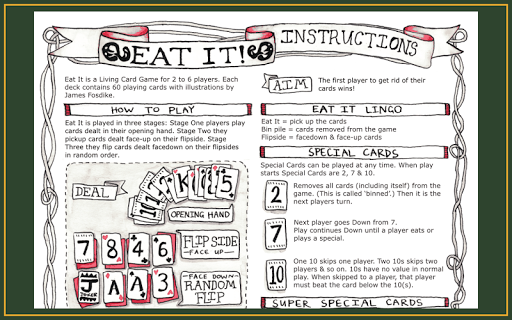 EAT IT!
INSTRUCTIONS
Eat It is a Living Card Game for 2 to 6 players. Each
deck contains 60 playing cards with illustrations by
James Fosdike.
HOW TO PLAY
Eat It is played in three stages: Stage One players play
cards dealt in their opening hand. Stage Two they
pickup cards dealt face-up on their flipside. Stage
Three they flip cards dealt facedown on their flipsides
in random order.
DEAL
K
5
OPENING HAND
7 8 4 6
FLIP SIDE
FACE UP
J A A 3
JOKER
FACE DOWN
RANDOM
FLIP
AIM
The first player to get rid of their
cards wins!
EAT IT LINGO
Eat It = pick up the cards
Bin pile = cards removed from the game
Flipside = facedown & face-up cards
SPECIAL CARDS
Special Cards can be played at any time. When play
starts Special Cards are 2, 7 & 10.
2
Removes all cards (including itself) from the
game. (This is called 'binned'.) Then it is the
next players turn.
7
Next player goes Down from 7.
Play continues Down until a player eats or
plays a special.
10
One 10 skips one player. Two 10s skips two
players & so on. 10s have no value in normal
play. When skipped to a player, that player
must beat the card below the 10(s).
SUPER SPECIAL CARDS